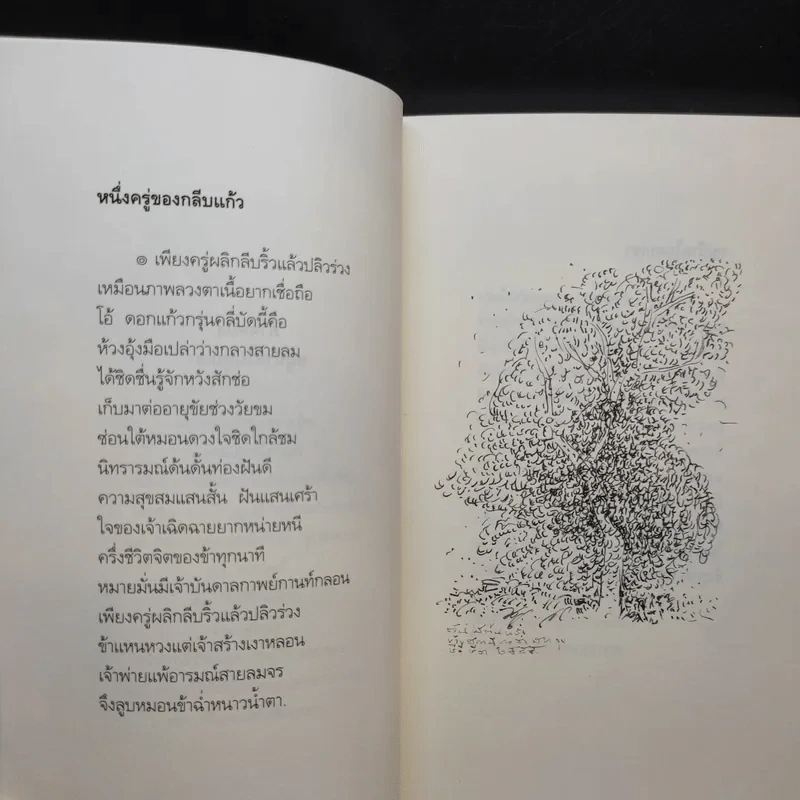 หนึ่งครู่ของกลีบแก้ว
๏ เพียงครู่ผลิกลีบริ้วแล้วปลิวร่วง
เหมือนภาพลวงตาเนื้อยากเชื่อถือ
โอ้ ดอกแก้วกรุ่นคลี่บัดนี้คือ
ห้วงอุ้งมือเปล่าว่างกลางสายลม
ได้ชิดชื่นรู้จักหวังสักช่อ
เก็บมาต่ออายุขัยช่วงวัยขม
ซ่อนใต้หมอนดวงใจชิดใกล้ชม
นิทรารมณ์ด้นดั้นท่องฝันดี
ความสุขสมแสนสั้น ฝันแสนเศร้า
ใจของเจ้าเฉิดฉายยากหน่ายหนี
ครึ่งชีวิตจิตของข้าทุกนาที
หมายมั่นมีเจ้าบันดาลกาพย์กานท์กลอน
เพียงครู่ผลิกลีบริ้วแล้วปลิวร่วง
ข้าแหนหวงแต่เจ้าสร้างเงาหลอน
เจ้าพ่ายแพ้อารมณ์สายลมจร
จึงลูบหมอนข้าฉ่ำหนาวน้ำตา.